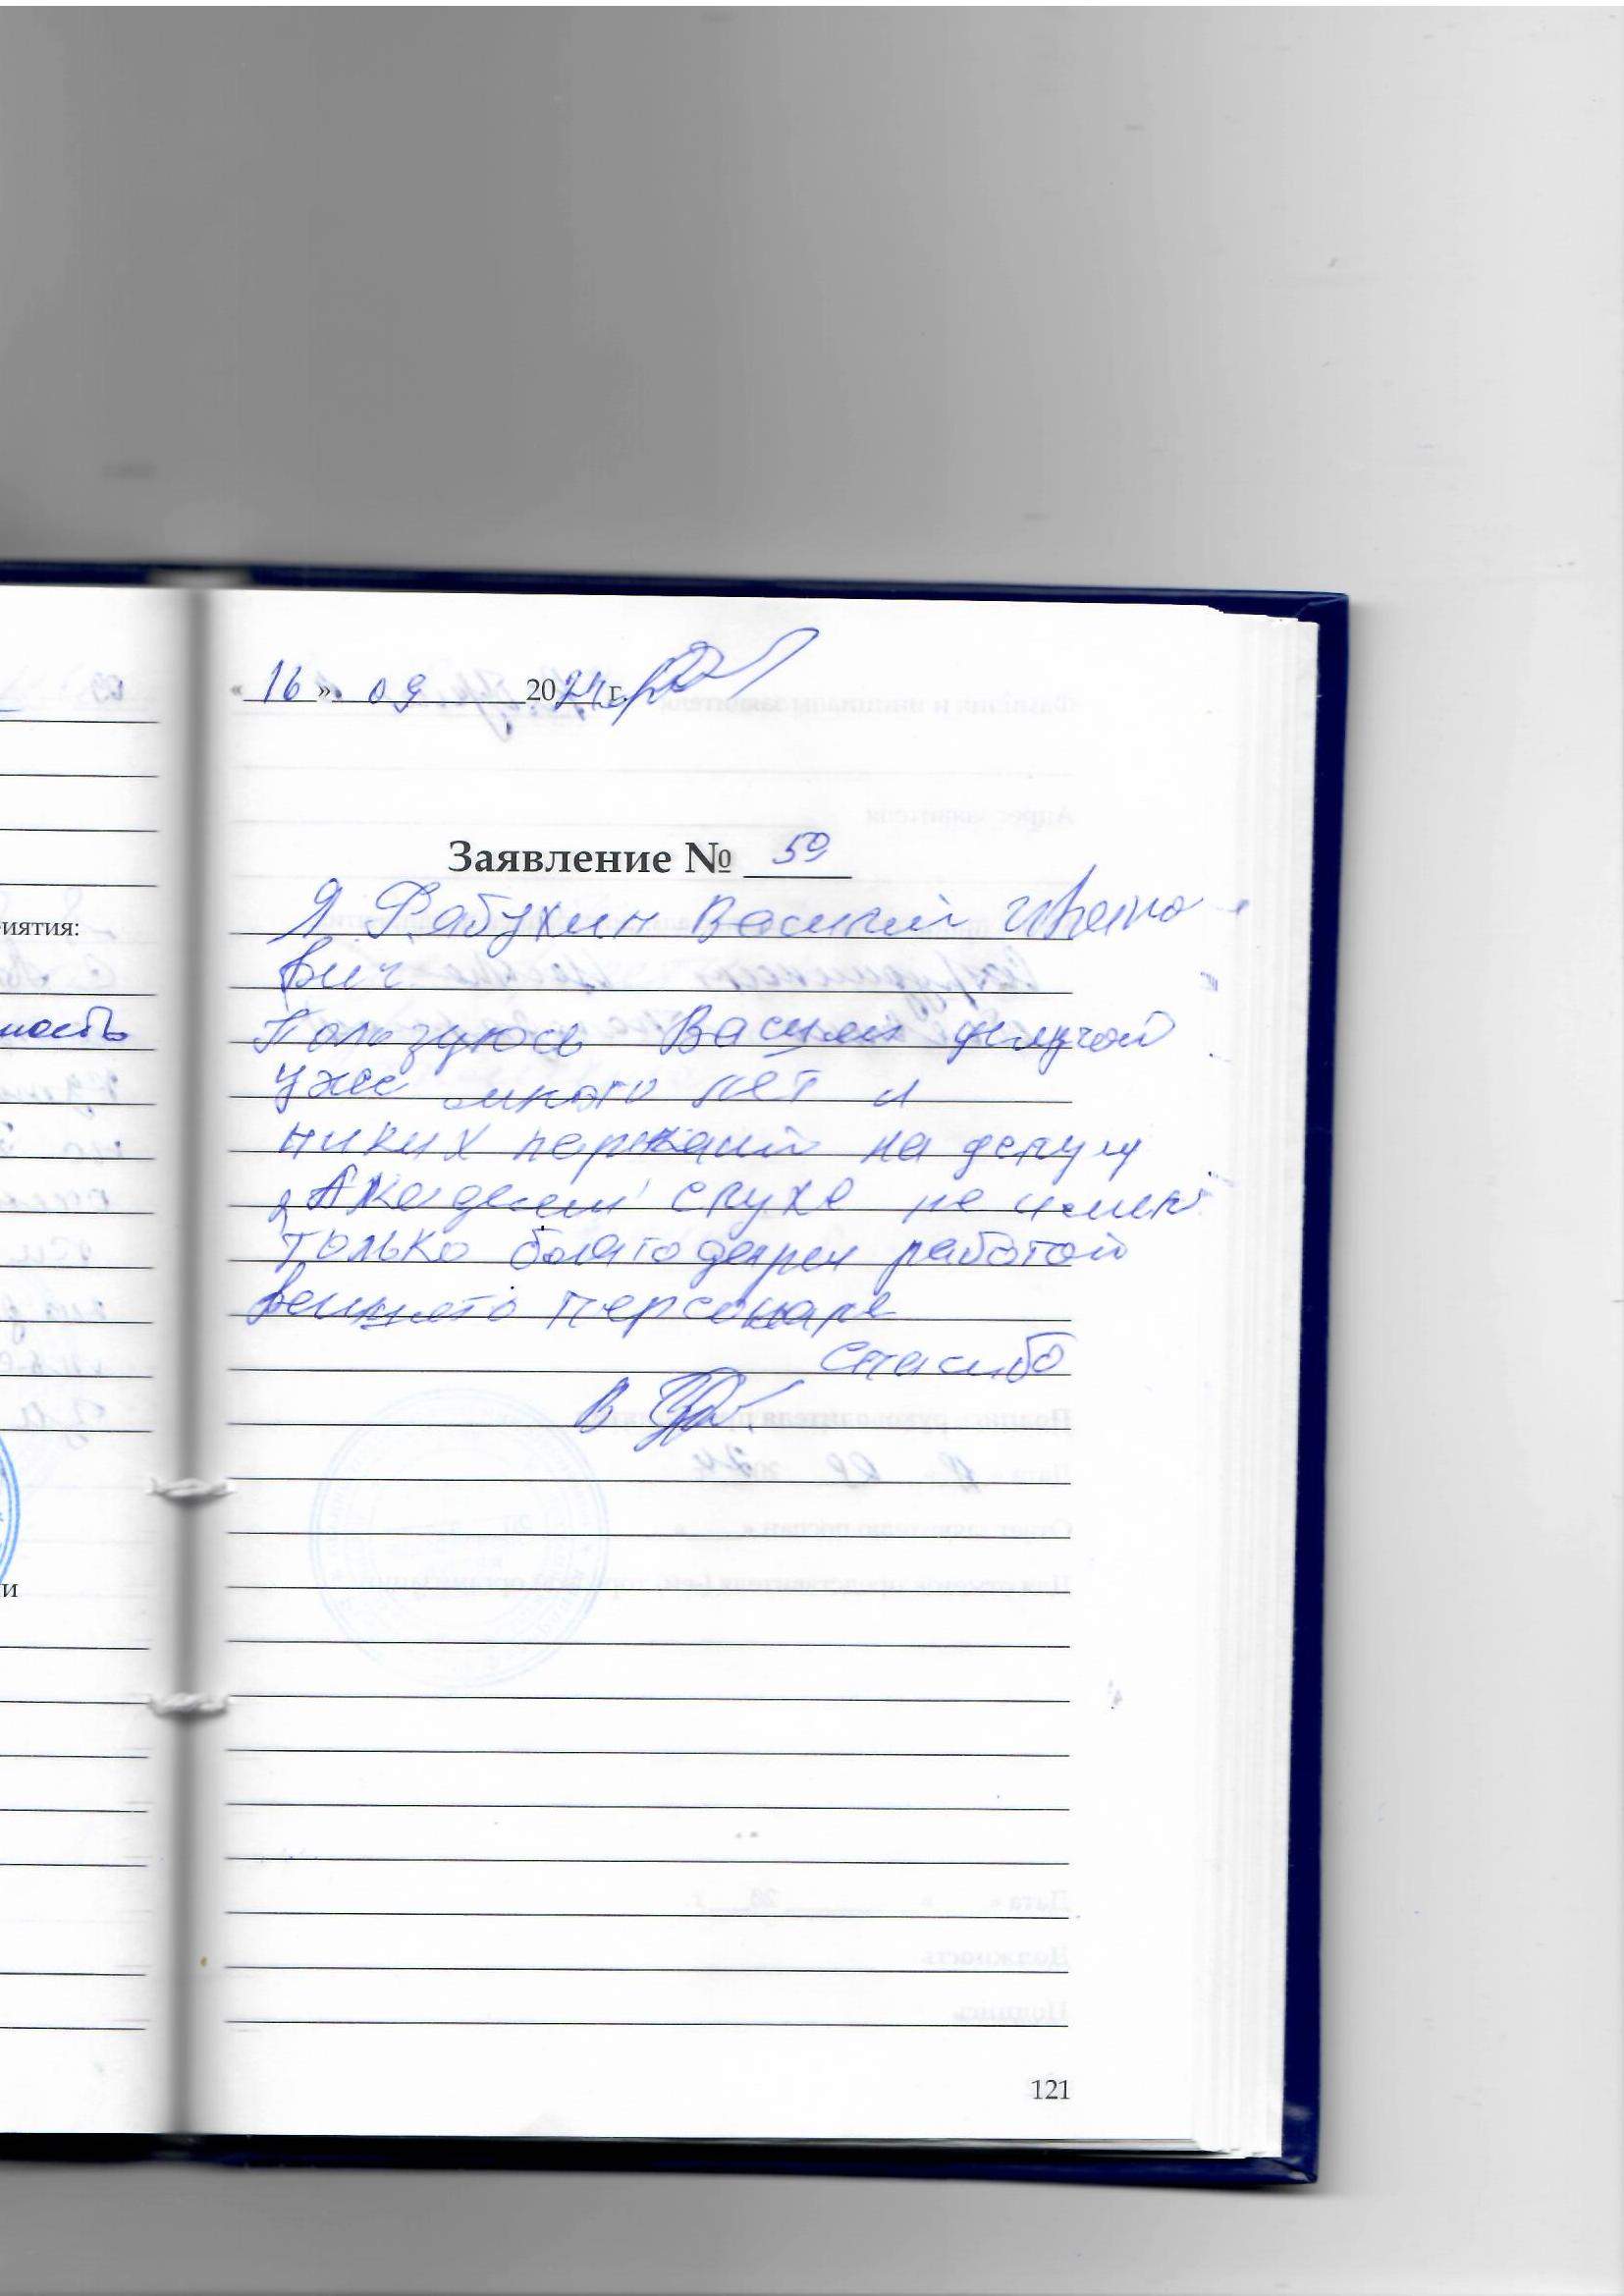 «16». 09 2024 г.
Заявление № 59
Я Фабухин Василий Ивано
вич
Пользуюсь Вашим услугой
уже много лет и
никих на
"Академии слуха не имею
только благодаря работой
вашего персонала
спасибо
В
121
иятия:
ность
и